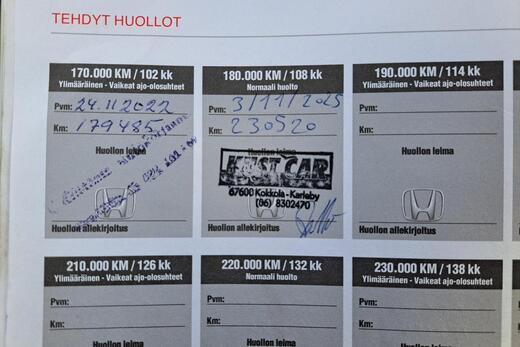 TEHDYT HUOLLOT
170.000 KM / 102 kk
Ylimääräinen - Vaikeat ajo-olosuhteet
Pvm: 24.11.2022
Km: 179485
Huollon leima
Huollon allekirjoitus
180.000 KM / 108 kk
Normaali huolto
Pvm: 3/11/2025
Km: 230520
Huollon leima
KUST CAR
67600 Kokkola - Karleby
(06) 8302470
190.000 KM / 114 kk
Ylimääräinen - Vaikeat ajo-olosuhteet
Pvm:
Km:
Huollon leima
Huollon allekirjoitus
210.000 KM / 126 kk
Ylimääräinen - Vaikeat ajo-olosuhteet
Pvm:
Km:
Huollon leima
220.000 KM / 132 kk
Normaali huolto
Pvm:
Km:
Huollon leima
230.000 KM / 138 kk
Ylimääräinen - Vaikeat ajo-olosuhteet
Pvm:
Km:
Huollon leima